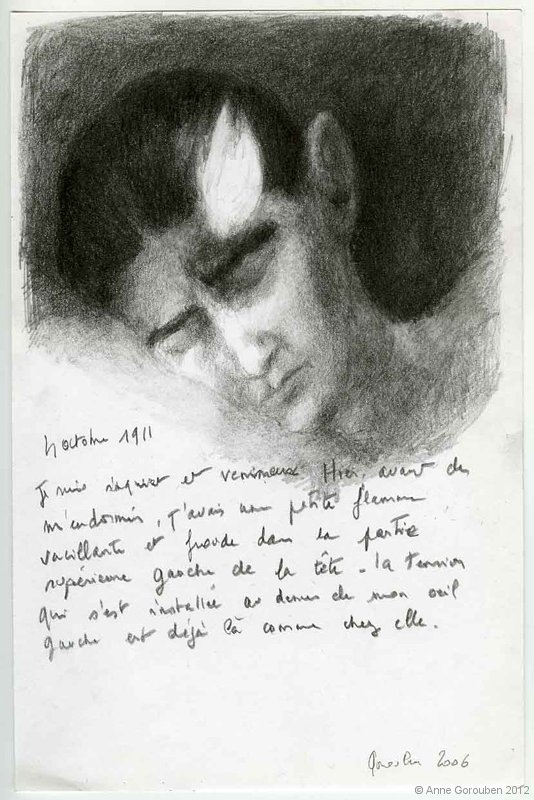 4 octobre 1911
Je suis inquiet et venimeux. Hier, avant de
m'endormir, j'avais une petite flamme
vacillante et froide dans la partie
supérieure gauche de la tête. la tension
qui s'est installée au dessus de mon oeil
gauche est déjà là comme chez elle.
2006
© Anne Gorouben 2012